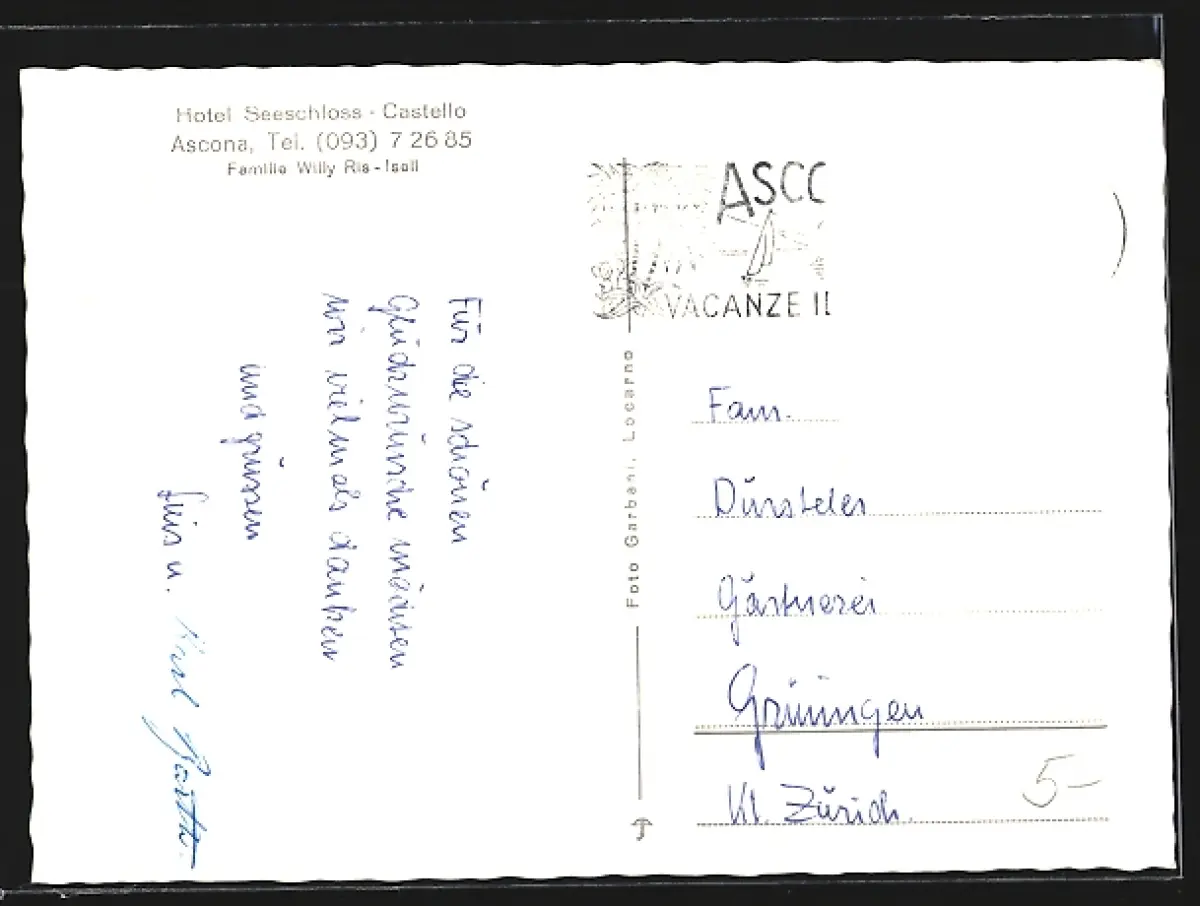 Hotel Seeschloss - Castello
Ascona, Tel. (093) 7 26 85
Familie Willy Ris-Isell
Für die schönen
Glückwünsche möchten
wir vielmals danken
und grüssen
u.
ASCO
VACANZE
Foto Garbani, Locarno
Fam.
Dürsteler
Gärtnerei
Grüningen
Kt. Zürich.
5-